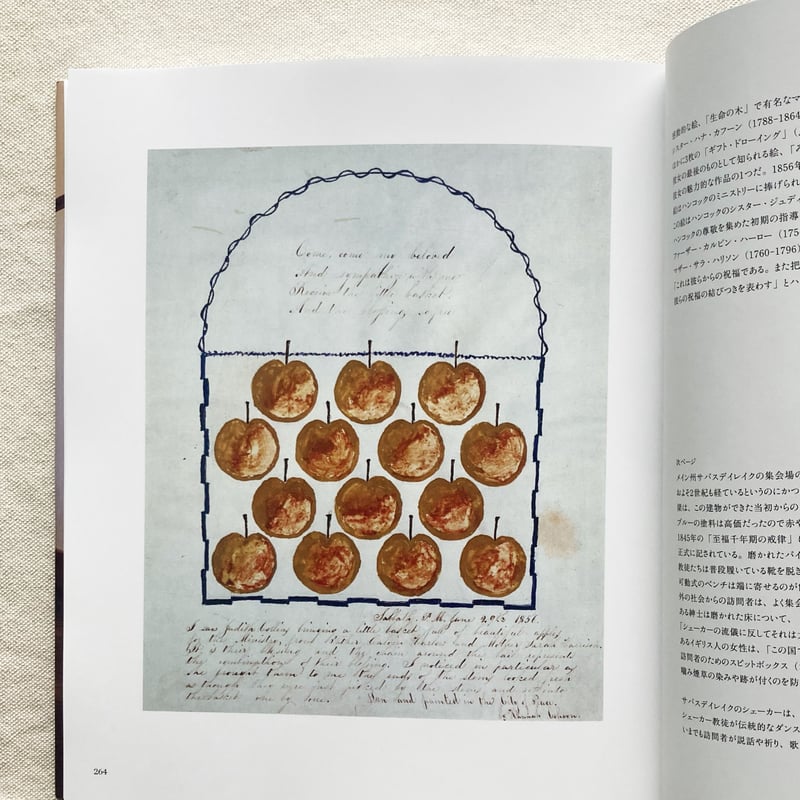 Come, come my beloved
And sympathize with me
Receive the little basket
And the blessing so free
Sabbath. P.M. June 29th 1856.
I saw Judith Collins bringing a little basket full of beautiful apples
for the Ministry, from Father Calvin Harlow and Mother Sarah Harrison.
It is their blessing and the chain around the bail represents
the combination of their blessing. I noticed in particular as
she brought them to me the ends of the stems looked fresh
as though they were just picked by the stems and set into
the basket one by one. Seen and painted in the City of Peace.
by Hannah Cohoon.
264
動的な絵、「生命の木」で有名なマ
スター・ハナ・カフーン（1788-1864
かに3枚の「ギフト・ドローイング」（
女の最後のものとして知られる絵、「
女の魅力的な作品の1つだ。1856年
絵はハンコックのミニストリーに捧げられ
この絵はハンコックのシスター・ジュディ
ハンコックの尊敬を集めた初期の指導
ファーザー・カルビン・ハーロー（175
マザー・サラ・ハリソン（1760-1796）
「これは彼らからの祝福である。また把
彼らの祝福の結びつきを表わす」とハ
次ページ
メイン州サバスデイレイクの集会場の
およそ2世紀も経ているというのにかつ
築は、この建物ができた当初からの
ブルーの塗料は高価だったので赤や
1845年の「至福千年期の戒律」
正式に記されている。磨かれたパイ
教徒たちは普段履いている靴を脱ぎ
可動式のベンチは端に寄せるのが
外の社会からの訪問者は、よく集会
ある紳士は磨かれた床について、
「シェーカーの流儀に反してそれはつ
あるイギリス人の女性は、「この国で
訪問者のためのスピットボックス（
噛み煙草の染みや跡が付くのを防
サバスデイレイクのシェーカーは、
シェーカー教徒が伝統的なダンス
いまでも訪問者が説話や祈り、歌